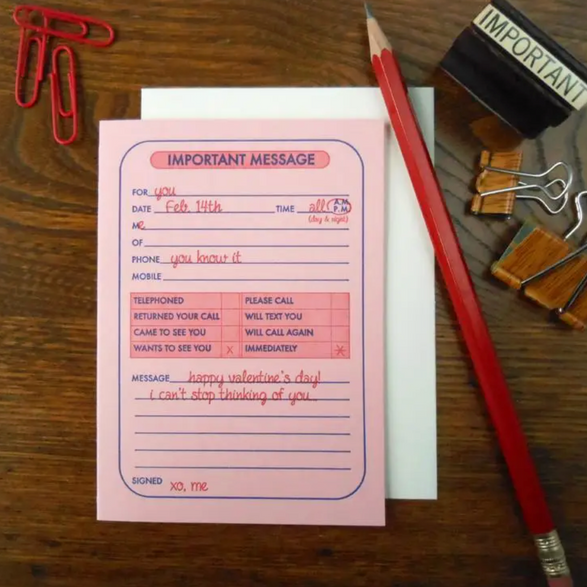 IMPORTANT MESSAGE
FOR you
DATE Feb. 14th TIME all A.M. P.M.
(day & night)
Me
OF
PHONE you know it
MOBILE
TELEPHONED PLEASE CALL
RETURNED YOUR CALL WILL TEXT YOU
CAME TO SEE YOU WILL CALL AGAIN
WANTS TO SEE YOU x IMMEDIATELY *
MESSAGE happy valentine's day!
i can't stop thinking of you...
SIGNED xo, me
IMPORTANT